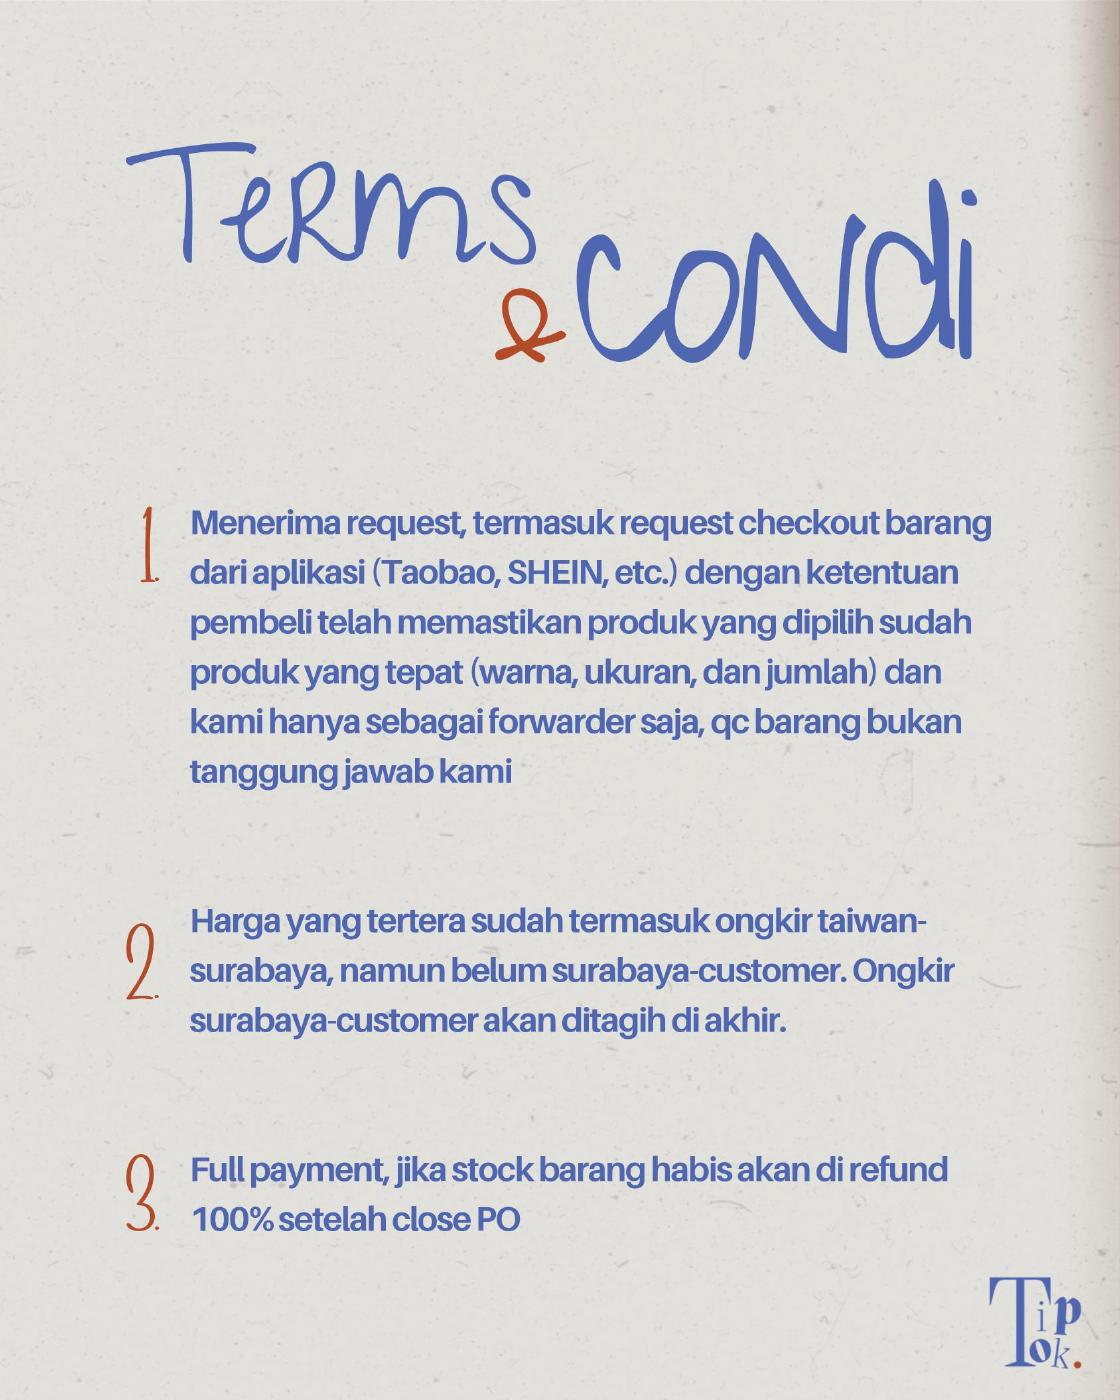 Terms
& condi
1. Menerima request, termasuk request checkout barang
dari aplikasi (Taobao, SHEIN, etc.) dengan ketentuan
pembeli telah memastikan produk yang dipilih sudah
produk yang tepat (warna, ukuran, dan jumlah) dan
kami hanya sebagai forwarder saja, qc barang bukan
tanggung jawab kami
2. Harga yang tertera sudah termasuk ongkir taiwan-
surabaya, namun belum surabaya-customer. Ongkir
surabaya-customer akan ditagih di akhir.
3. Full payment, jika stock barang habis akan di refund
100% setelah close PO
Tip
Tok.